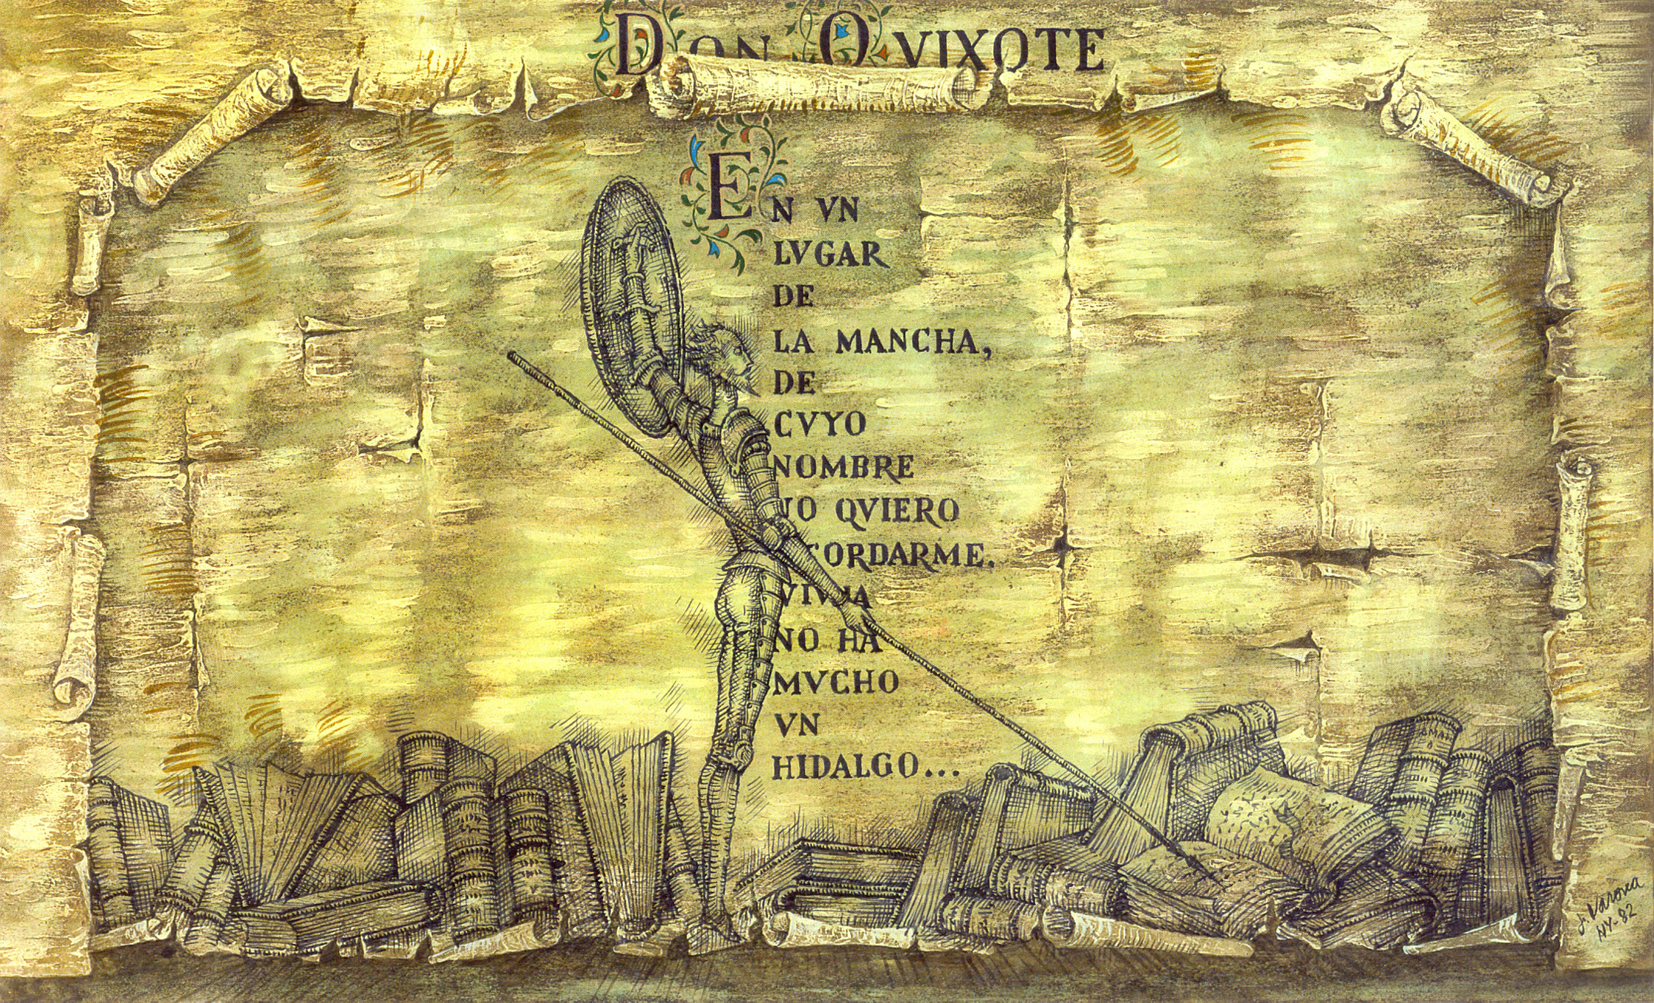 DON QVIXOTE
EN VN
LVGAR
DE
LA MANCHA,
DE
CVYO
NOMBRE
NO QVIERO
ACORDARME.
VIVIA
NO HA
MVCHO
VN
HIDALGO...
J. Varona
NY-82